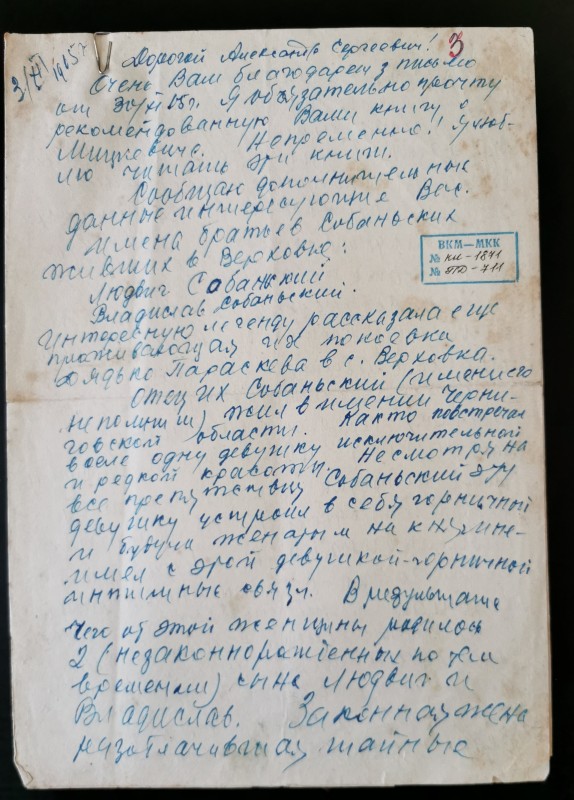 3
Дорогой Александр Сергеевич!
Очень Вам благодарен з письмо
от Я обязательно прочту
рекомендованную Вами книгу о
Мицкевиче. Непременно! Я люб-
лю читать эти книги.
Сообщаю дополнительные
данные интересующие Вас.
Имена братьев Собаньских
живших в Верховке:
Людвиг Собаньский.
Владислав Собаньский.
ВКМ—МКК
№ КП-1871
№ ПД-711
Интересную легенду рассказала еще
проживающая их покоевка
Дядько Параскева в с. Верховка.
Отец их Собаньский (имени его
не помниш) жил в имении Черни-
говской области. Както повстречал
в селе одну девушку исключительной
и редкой красоты. Несмотря на
все препятствия Собаньский эту
девушку устроил в себя горничной
и будучи женатым на княгине-
имел с этой девушкой-горничной
интимные связи. В результате
чего от этой женщины родилось
2 (незаконнорожденных по тем
временам) сына Людвиг и
Владислав. Законная жена
тайные